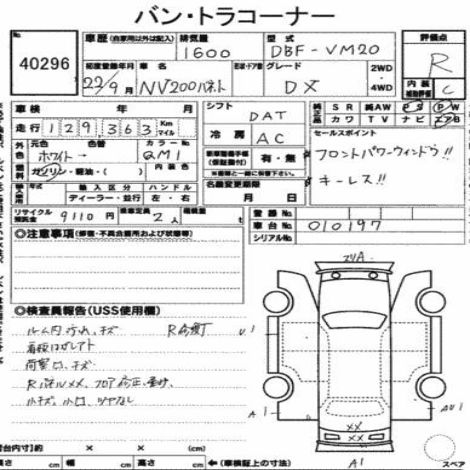 バン・トラコーナー
40296
車歴 (自家用以外は記入)
排気量
1600
型式
DBF-VM20
評価点
R
初度登録年月
22/9月
車名
NV200バネット
ドア数
グレード
DX
2WD
4WD
内装
補助評価
C
車検 年 月
シフト
DAT
純正品
SR 純AW PS PW
カワ TV ナビ エアB
走行 129,363 Km
マイル
冷房
AC
セールスポイント
フロントパワーウィンドウ!!
キーレス!!
外色
元色
ホワイト→
色替
カラーNo
QM1
内装色
燃料
ガソリン・軽油・( )
新車整備手帳
(保証書付)
有・無
輸入 年モデル 輸入区分 ハンドル
ディーラー・並行 左・右
名義変更期限
月 日
リサイクル
預託金
9110 円
乗車定員
2人
積載量
t
登録No
車台No
010197
シリアルNo
◎注意事項 (修復・不具合箇所および状態等)
◎検査員報告(USS使用欄)
ルーム内汚れ、キズ
看板はがしアト
荷室凹、キズ
小キズ、小凹、ツヤなし
U1
A1
AU1
XX
A1
スペア
荷台内寸
× ×
高さ cm 幅 cm 高さ cm
←(車検証上の寸法)